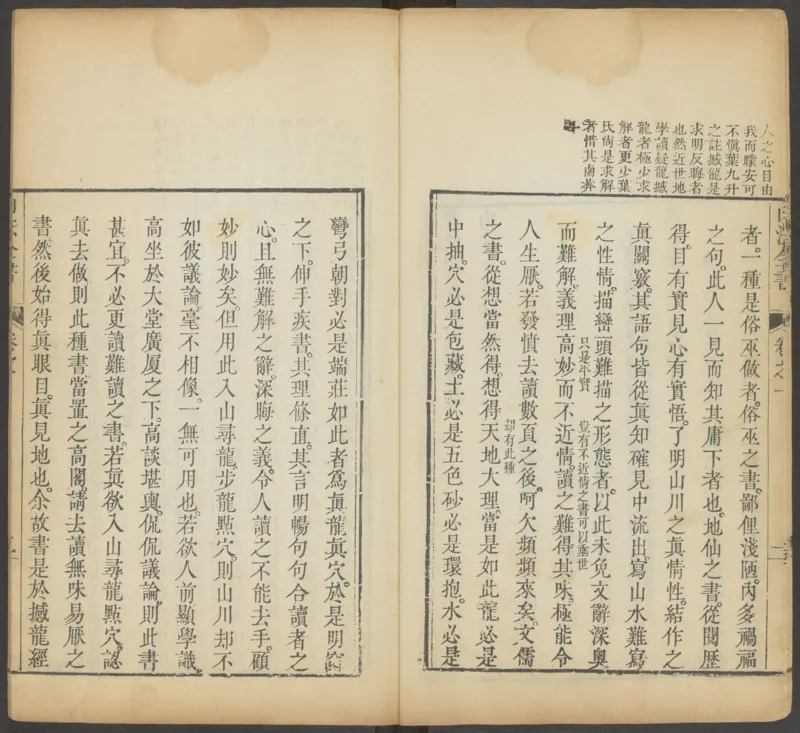 人之心目由
我而矇安可
不愼葉九升
之註撼龍是
求明反晦者
也然近世地
學讀疑龍撼
龍者極少求
解者更少葉
氏尙是求解
者惜其鹵莽
者。一種是俗巫做者。俗巫之書。鄙俚淺陋。內多禍福
之句。此人一見而知其庸下者也。地仙之書。從閱歷
得。目有實見。心有實悟。了明山川之眞情性。結作之
眞關竅。其語句皆從眞知確見中流出。寫山水難寫
之性情。描巒頭難描之形態者。以此未免文辭深奧
只是平實
豈有不近情之書可以垂世
而難解。義理高妙而不近情。讀之難得其味。極能令
人生厭。若發憤去讀數頁之後。呵欠頻頻來矣。文儒
却有此種
之書。從想當然得。想得天地大理。當是如此。龍必是
中抽。穴必是包藏。土必是五色。砂必是環抱。水必是
彎弓。朝對必是端莊。如此者爲眞龍眞穴。於是明窓
之下。伸手疾書。其理條直。其言明暢。句句合讀者之
心。且無難解之辭。深晦之義。令人讀之不能去手。顧
妙則妙矣。但用此入山尋龍。步龍點穴。則山川却不
如彼議論。毫不相像。一無可用也。若欲人前顯學識。
高坐於大堂廣厦之下。高談堪輿。侃侃議論。則此書
甚宜。不必更讀難讀之書。若眞欲入山尋龍點穴。認
眞去做。則此種書當置之高閣。請去讀無味易厭之
書。然後始得眞眼目。眞見地也。余故書是於撼龍經